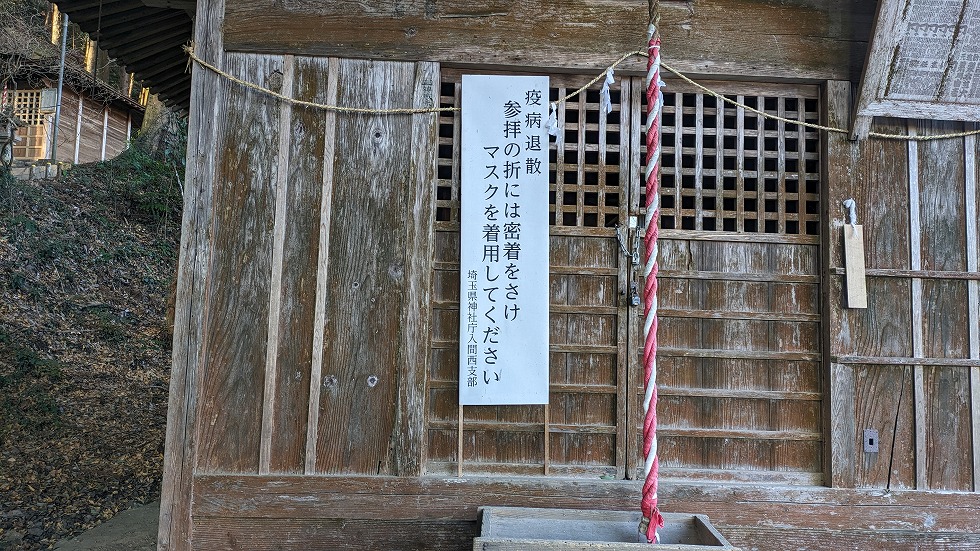 疫病退散
参拝の折には密着をさけ
マスクを着用してください
埼玉県神社庁入間西支部